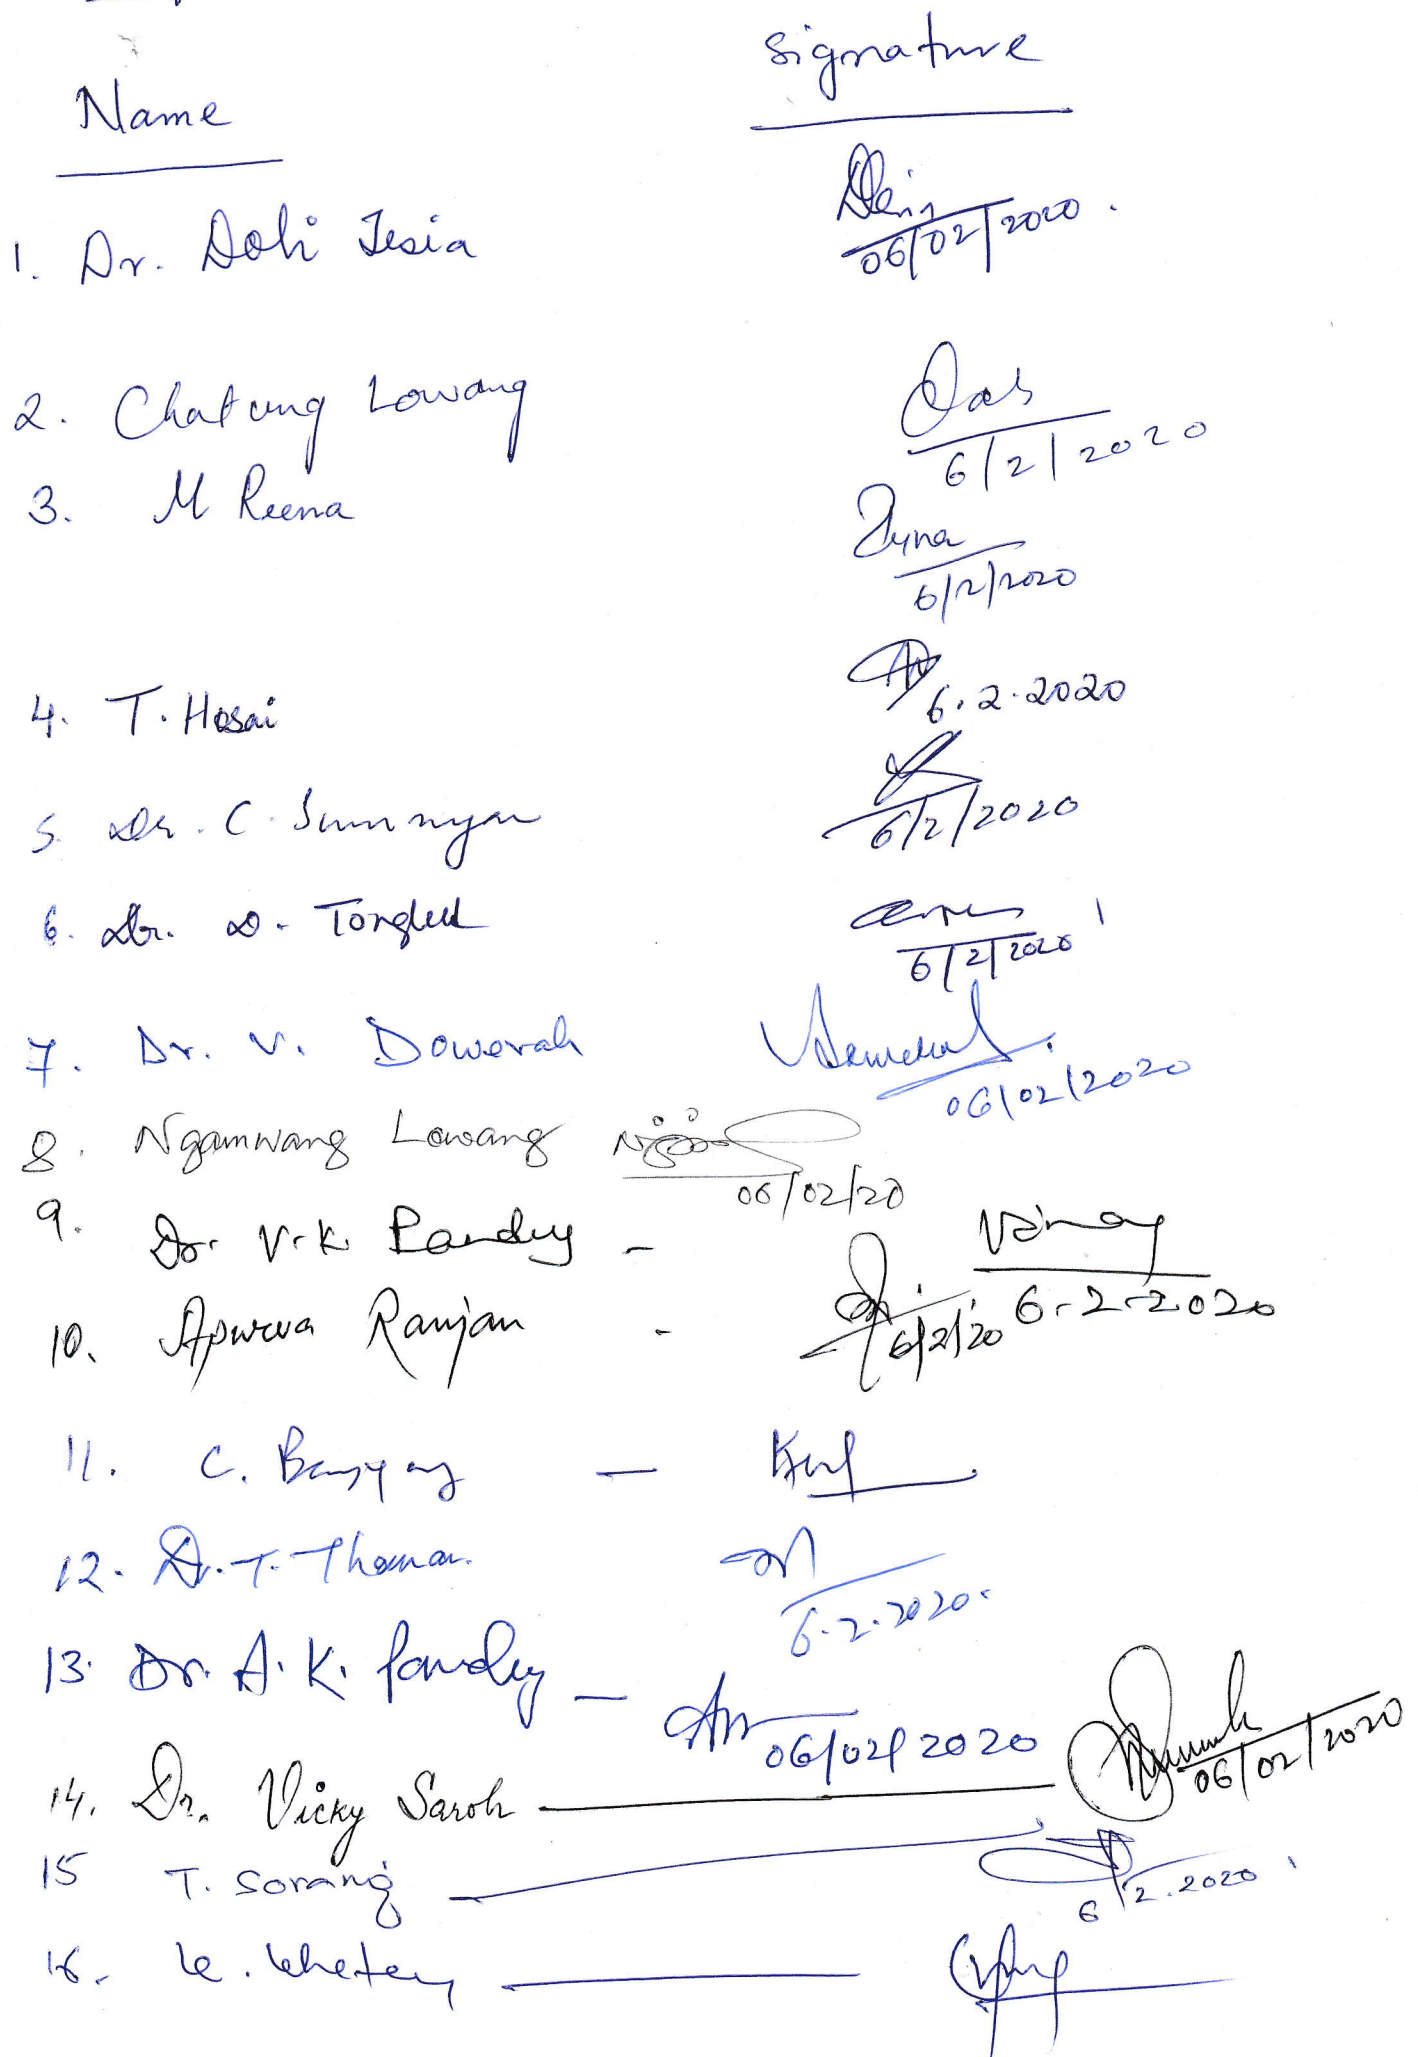 Name signature
1. Dr. Doli Tesia 06/02/2020.
2. Chatung Lowang 6/2/2020
3. M Reena 6/2/2020
4. T. Hosai 6.2.2020
5. Dr. C. Sumnyan 6/2/2020
6. Dr. D. 6/2/2020
7. Dr. V. Dowerah 06/02/2020
8. Ngamwang Lowang 06/02/20
9. Dr. V.K. Pandey - Vinay 6.2.2020
10. Apurva Ranjan - 6/2/20
11. C. —
12. Dr. T. 6.2.2020.
13. Dr. A. K. Pandey — 06/02/2020
14. Dr. Vicky Saroh — 06/02/2020
15 T. Sorang — 6/2.2020
16. —